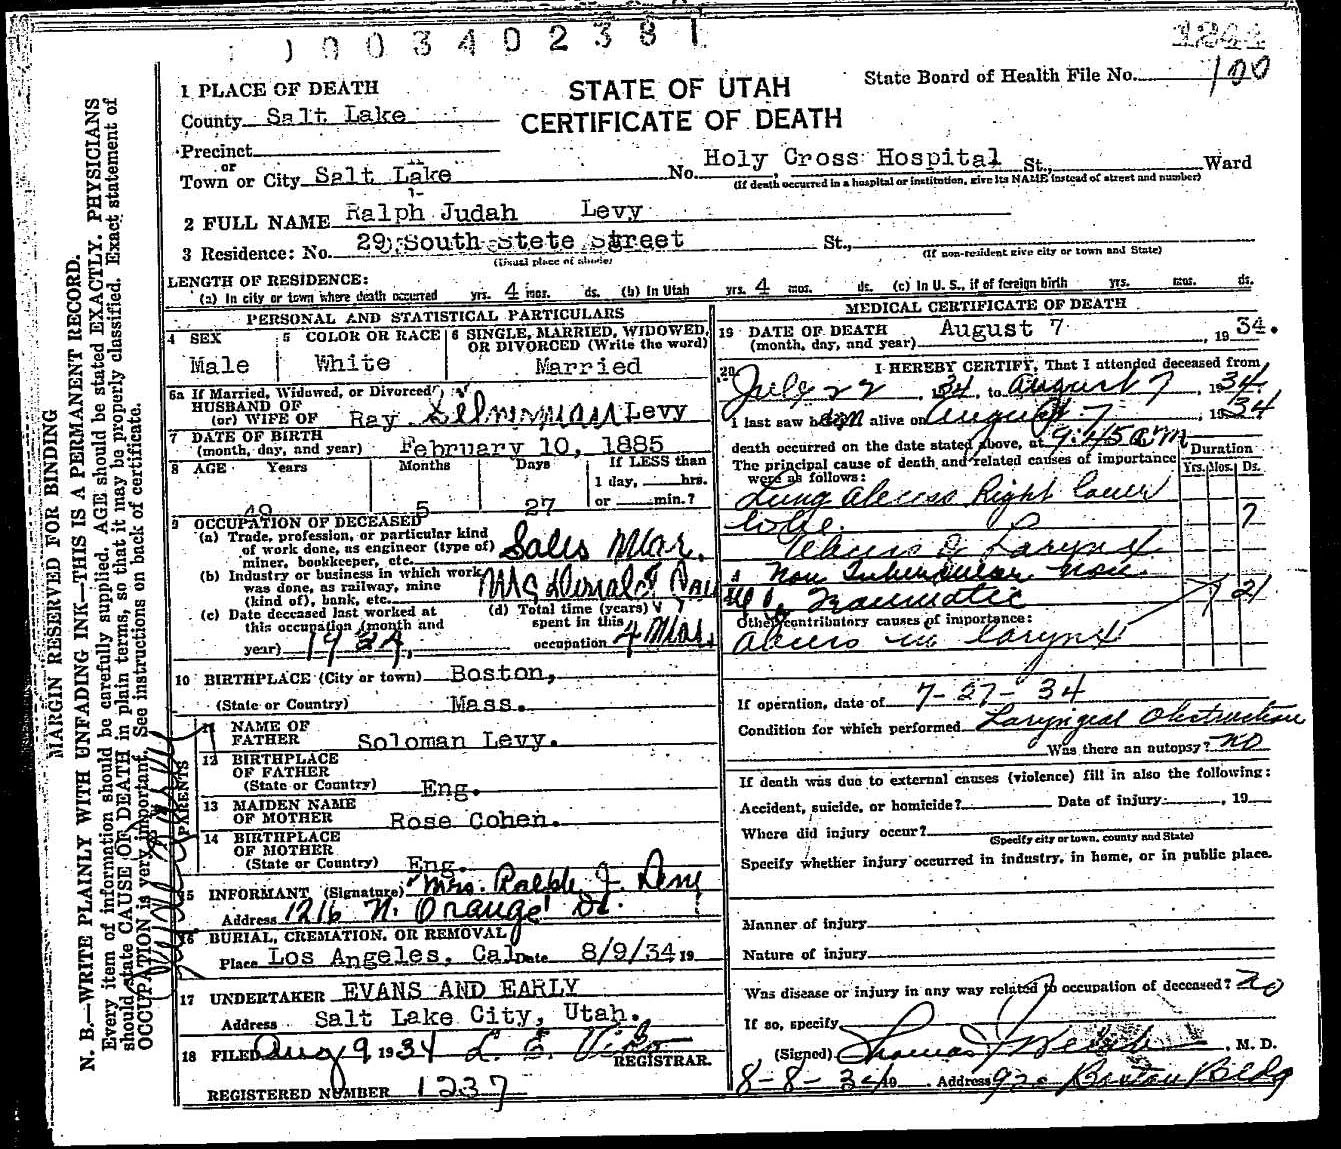 1003402381
1244
STATE OF UTAH
CERTIFICATE OF DEATH
State Board of Health File No. 100
1 PLACE OF DEATH
County Salt Lake
Precinct
or
Town or City Salt Lake No. Holy Cross Hospital St., Ward
(If death occurred in a hospital or institution, give its NAME instead of street and number)
2 FULL NAME Ralph Judah Levy
3 Residence: No. 29 South Stete Street St.,
(Usual place of abode) (If non-resident give city or town and State)
LENGTH OF RESIDENCE:
(a) In city or town where death occurred yrs. 4 mos. ds. (b) In Utah yrs. 4 mos. ds. (c) In U. S., if of foreign birth yrs. mos. ds.
PERSONAL AND STATISTICAL PARTICULARS
4 SEX 5 COLOR OR RACE 6 SINGLE, MARRIED, WIDOWED,
OR DIVORCED (Write the word)
Male White Married
6a If Married, Widowed, or Divorced
HUSBAND OF
(or) WIFE OF Ray Levy
7 DATE OF BIRTH
(month, day, and year) February 10, 1885
8 AGE Years Months Days If LESS than
1 day, hrs.
or min.?
49 5 27
9 OCCUPATION OF DECEASED
(a) Trade, profession, or particular kind
of work done, as engineer (type of)
miner, bookkeeper, etc. Sales Mgr.
(b) Industry or business in which work
was done, as railway, mine
(kind of), bank, etc.
(c) Date deceased last worked at
this occupation (month and
year) 1934
(d) Total time (years)
spent in this
occupation 4 Mos.
10 BIRTHPLACE (City or town) Boston,
(State or Country) Mass.
PARENTS
11 NAME OF
FATHER Soloman Levy.
12 BIRTHPLACE
OF FATHER
(State or Country) Eng.
13 MAIDEN NAME
OF MOTHER Rose Cohen.
14 BIRTHPLACE
OF MOTHER
(State or Country) Eng.
15 INFORMANT (Signature) Mrs. Ralph J. Levy
Address 1216 N. Orange St.
16 BURIAL, CREMATION, OR REMOVAL
Place Los Angeles, Cal Date 8/9/34 19
17 UNDERTAKER EVANS AND EARLY
Address Salt Lake City, Utah.
18 FILED Aug 9 1934
REGISTRAR.
REGISTERED NUMBER 1237
MEDICAL CERTIFICATE OF DEATH
19 DATE OF DEATH
(month, day, and year) August 7, 1934.
20 I HEREBY CERTIFY, That I attended deceased from
July 22, 34, to August 7, 1934
I last saw him alive on August 7, 1934
death occurred on the date stated above, at 9:45 am
The principal cause of death and related causes of importance
were as follows:
Duration
Yrs. Mos. Ds.
Lung Abcess Right lower
lobe. 7
Abcess of Larynx
Non Tubercular Non
Traumatic 21
Other contributory causes of importance:
Abcess in larynx
If operation, date of 7-27-34
Condition for which performed Laryngeal Obstruction
Was there an autopsy? No
If death was due to external causes (violence) fill in also the following:
Accident, suicide, or homicide? Date of injury , 19
Where did injury occur?
(Specify city or town, county and State)
Specify whether injury occurred in industry, in home, or in public place.
Manner of injury
Nature of injury
Was disease or injury in any way related to occupation of deceased? No
If so, specify
(Signed) Thomas J , M. D.
8-8-34 19 . Address Boston Bldg
MARGIN RESERVED FOR BINDING
N. B.—WRITE PLAINLY WITH UNFADING INK—THIS IS A PERMANENT RECORD.
Every item of information should be carefully supplied. AGE should be stated EXACTLY. PHYSICIANS
should state CAUSE OF DEATH in plain terms, so that it may be properly classified. Exact statement of
OCCUPATION is very important. See instructions on back of certificate.